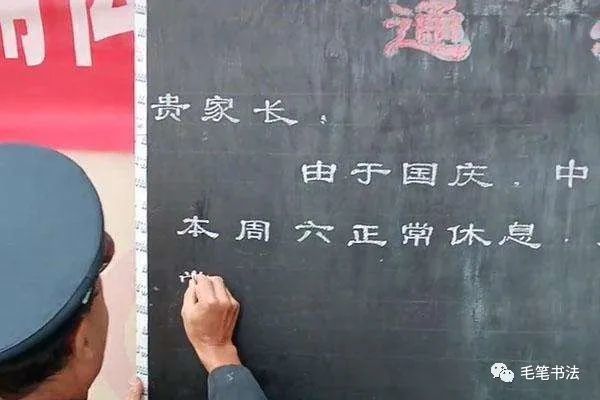 通
贵家长，
由于国庆，中
本周六正常休息，
毛笔书法